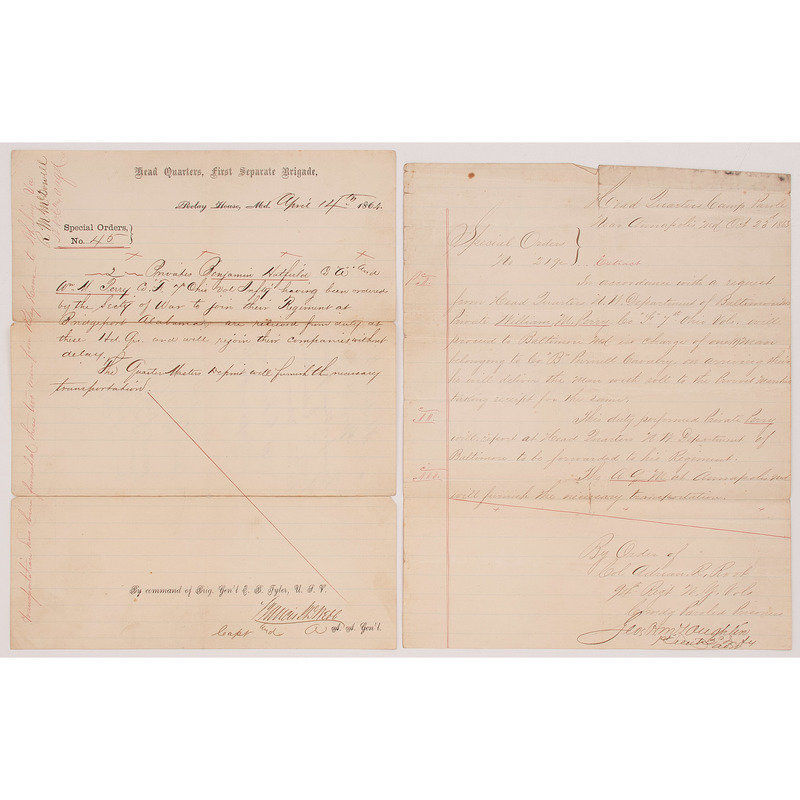 Head Quarters, First Separate Brigade,
Relay House, Md. April 14th 1864.
Special Orders,
No. 45
2 Privates Benjamin Hatfield Co "A" and
Wm H. Perry Co. F. 7" Ohio Vol Infty having been ordered
by the Secty of War to join their Regiment at
Bridgeport Alabama, are relieved from duty at
these Hd Qrs. and will rejoin their companies without
delay.
The Quarter Masters Depmt will furnish the necessary
transportation.
By command of Brig. Gen'l E. B. Tyler, U. S. V.
Capt and A A. A. Gen'l.
Transportation has been furnished these two men from Relay House to
Head Quarters Camp Parole
Near Annapolis, Md Oct 23d 1863
Special Order
No
Extract
1st
In accordance with a request
from Head Quarters Department of Baltimore
Private William H. Perry Co "F" 7th Ohio Vols. will
proceed to Baltimore Md in charge of one man
belonging to Co "B" Purnell Cavalry on arriving there
he will deliver the man with roll to the Provost Marshal
taking receipt for the same.
II.
This duty performed Private Perry
will report at Head Quarters Department of
Baltimore to be forwarded to his Regiment.
III.
The A Q M at Annapolis Md
will furnish the necessary transportation.
By Order of
Col Adrian R. Root
94th Regt N. Y. Vols
Comdg Paroled Prisoners